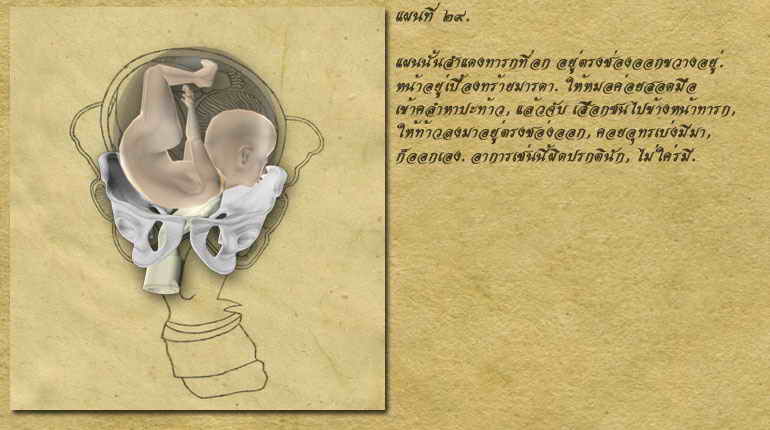 แผนที่ ๒๙.
แผนนั้นสำแดงทารกที่อก อยู่ตรงช่องออกขวางอยู่.
หน้าอยู่เบื้องทร้ายมารดา. ให้หมอค่อยสอดมือ
เข้าคลำหาปะท้าว, แล้วจับ เสือกซนไปข้างหน้าทารก,
ให้ท้าวลงมาอยู่ตรงช่องออก, คอยอุทรเบ่งมีมา,
ก็ออกเอง. อาการเช่นนี้ผิดปรกตินัก, ไม่ใคร่มี.